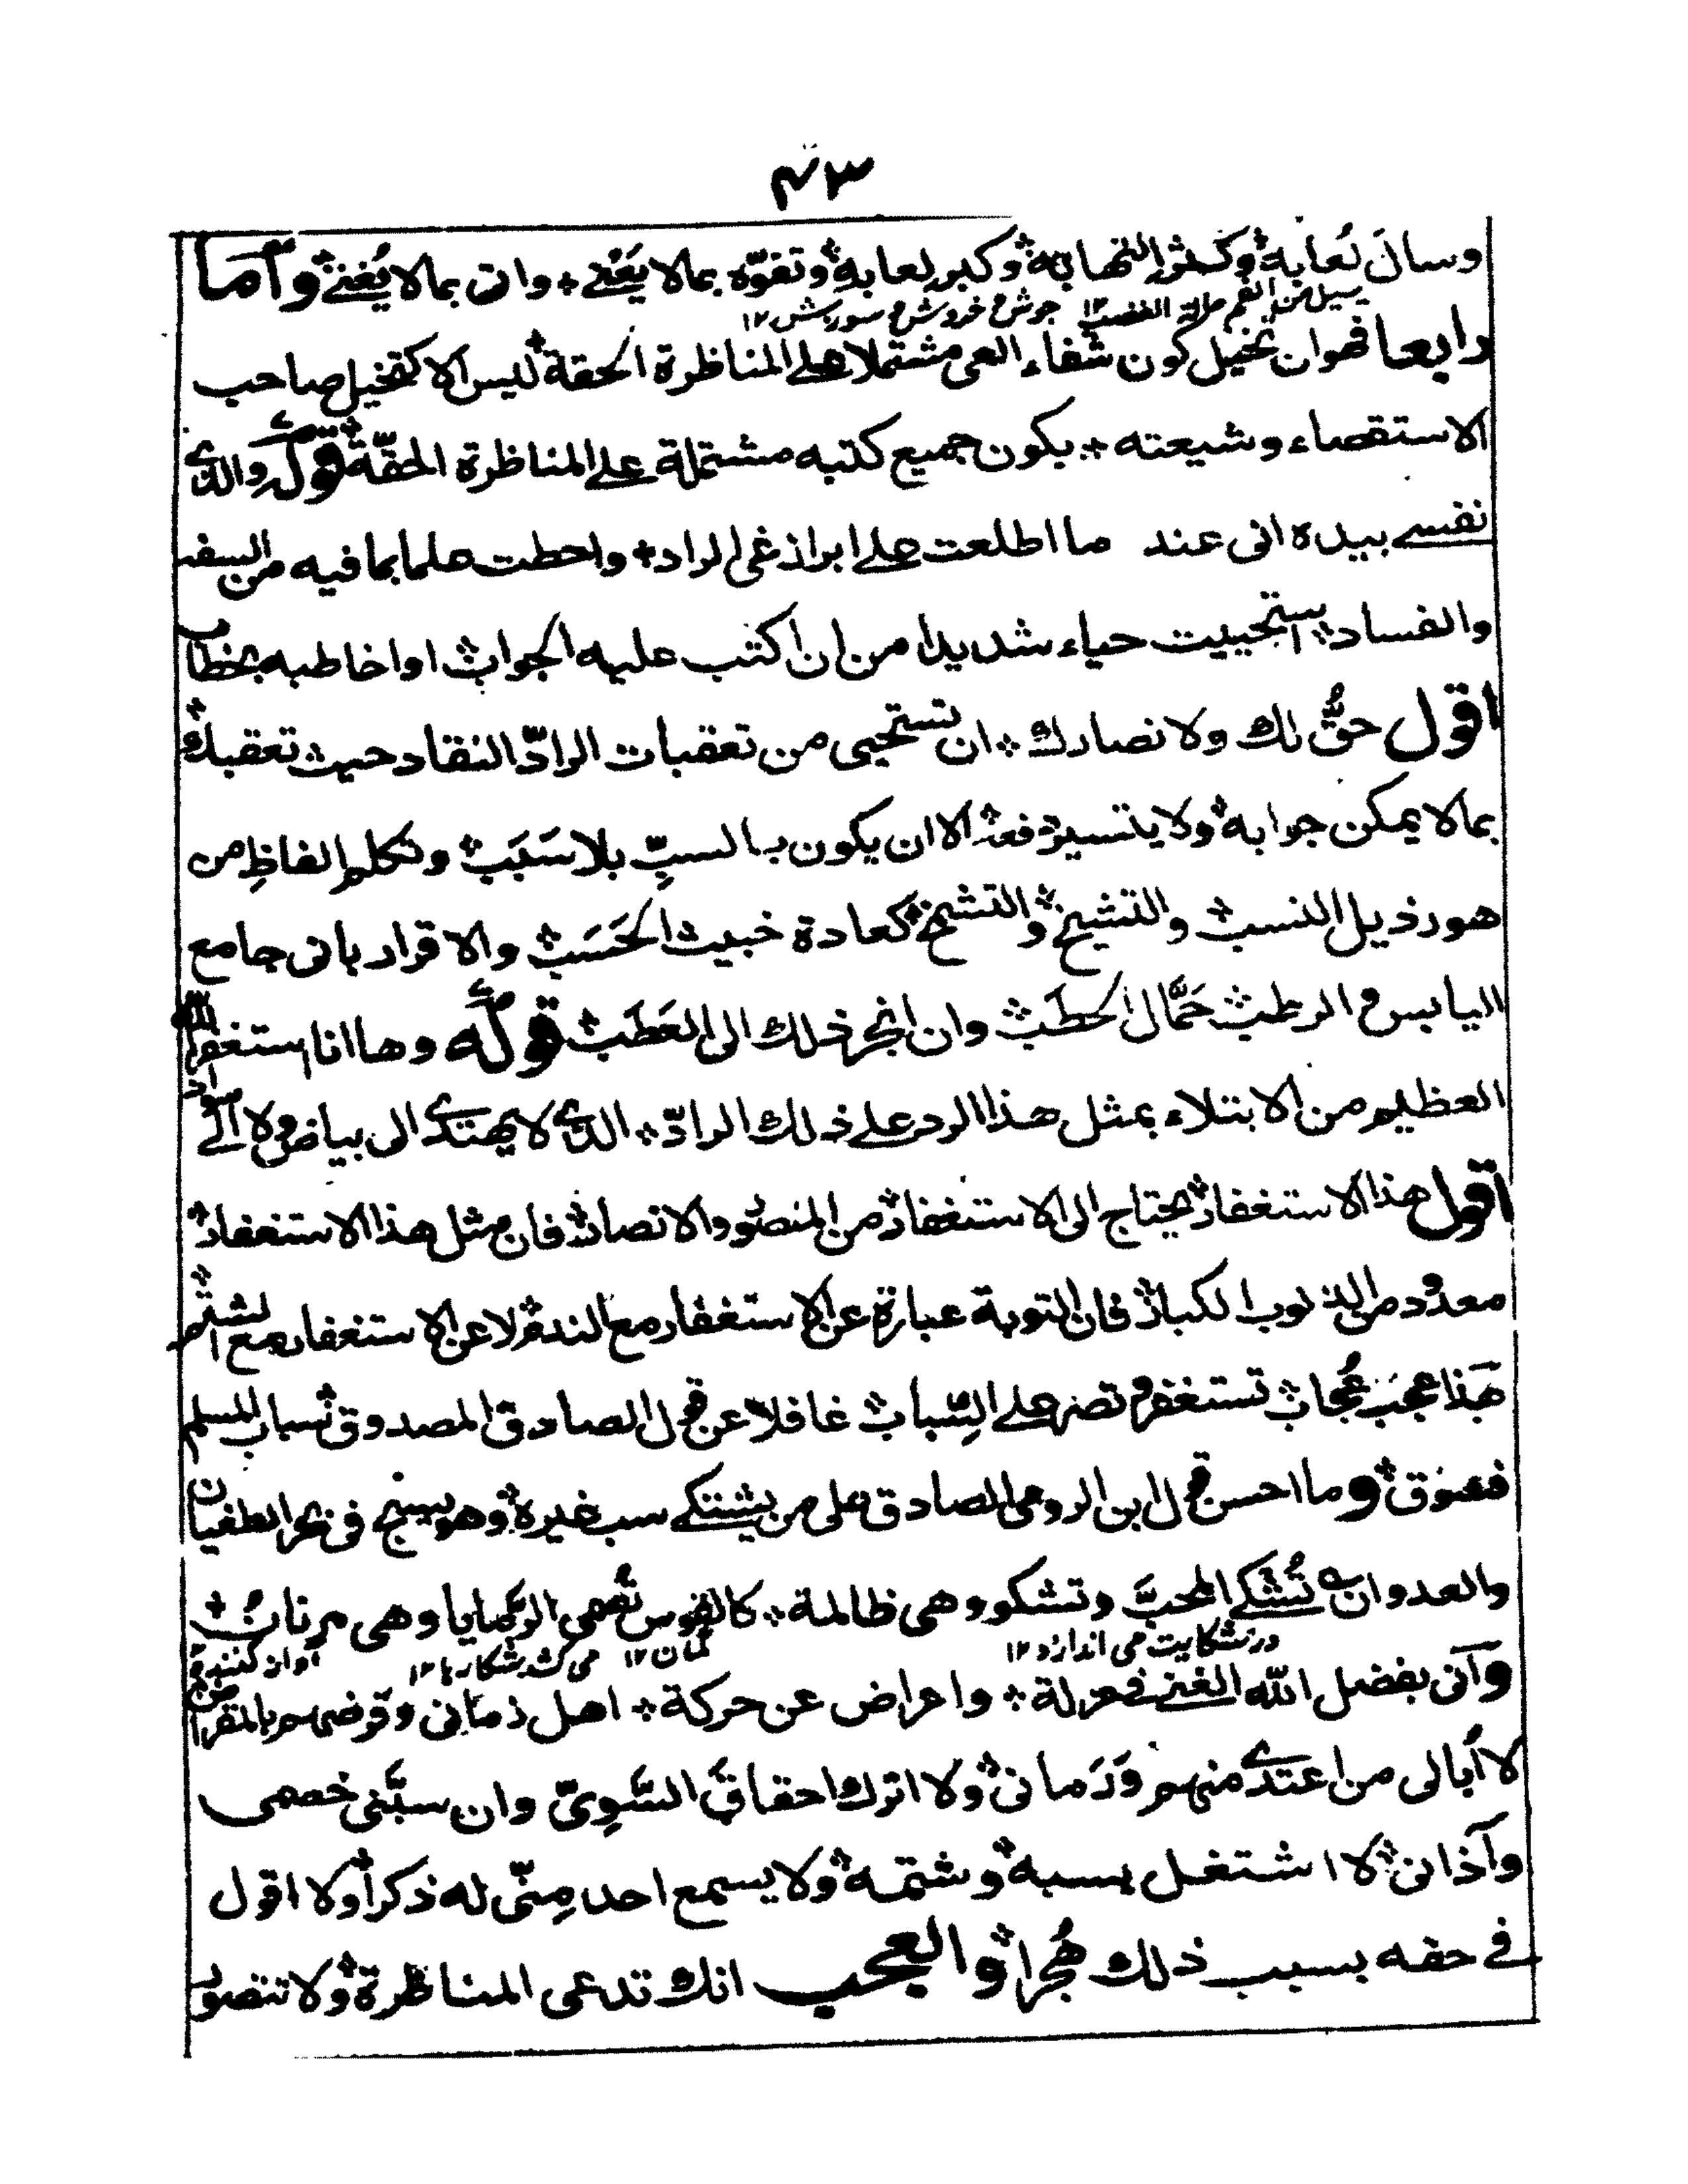 ٤٣
وسال لُعابه وكثر التهابه وكبر لعابه وتفوّه بمالا يَعْنے واتى بمالا يُغنے وآما
يسيل من الفم حالة الغضب ١٢ جوش و خروش و سورش ١٢
رابعا فهوان تخيل كون شفاء العى مشتملا علے المناظرة الحقة ليس الا كتخيل صاحب
الاستقصاء وشيعته بكون جميع كتبه مشتملة علے المناظرة الحقّة قوله والذے
نفسے بيده انى عند ما اطلعت علے ابراز غى الراد واحطت علما بما فيه من السفه
والفساد استحييت حياء شديدا من ان اكتب عليه الجواب او اخاطبه بخطاب
اقول حقُّ لك ولا نصارك ان تستحيى من تعقبات الرادّ النقاد حيث تعقبك
بمالا يمكن جوابه ولا يتيسر دفعه الا ان يكون بالسبِّ بلا سَبَب وتكلم الفاظِ من
هو رذيل النسب والتشيخ والتشيخ كعادة خبيث الحَسَب والاقرار بانى جامع
اليابس والرطب حَمَّال الحَطَب وان انجر ذلك الى العَطَب قوله وها انا استغفر الله
العظيم من الابتلاء بمثل هذا الرد علے ذلك الرادّ الذے لا يهتدے الى بياض ولا الے سواد
اقول هذا الاستغفار يحتاج الى الاستغفار من المنصور والانصار فان مثل هذا الاستغفار
معدود من الذنوب الكبار فان التوبة عبارة عن الاستغفار مع الندم لا عن الاستغفار مع الشتم
هَذا عجب عُجاب تستغفر وتصر علے السِّباب غافلا عن قول الصادق المصدوق سباب المسلم
فسوق وما احسن قول ابن الرومى الصادق على من يشتكے سب غيره وهو يسبح فى بحر الطغيان
والعدوان تُشكے المحبَّ وتشكو وهى ظالمة كالقوس تُصمى الرمايا وهى مرنان
در شكايت مى اندازد ١٢ كمان ١٢ مى كشد شكارها ١٢ آواز كننده
وآنى بفضل الله الغنے فے عزلة واعراض عن حركة اهل زمانى وقرضهم بالمقراض
لا اُبالى من اعتدے منهم وَرَمانى ولا اترك احقاق السَّوِىّ وان سبَّنى خصمى
وآذانى لا اشتغل بسبه وشتمه ولا يسمع احد مِنّى له ذكرا ولا اقول
فے حقه بسبب ذلك هُجرا والعجب انك تدعى المناظرة ولا تتصور